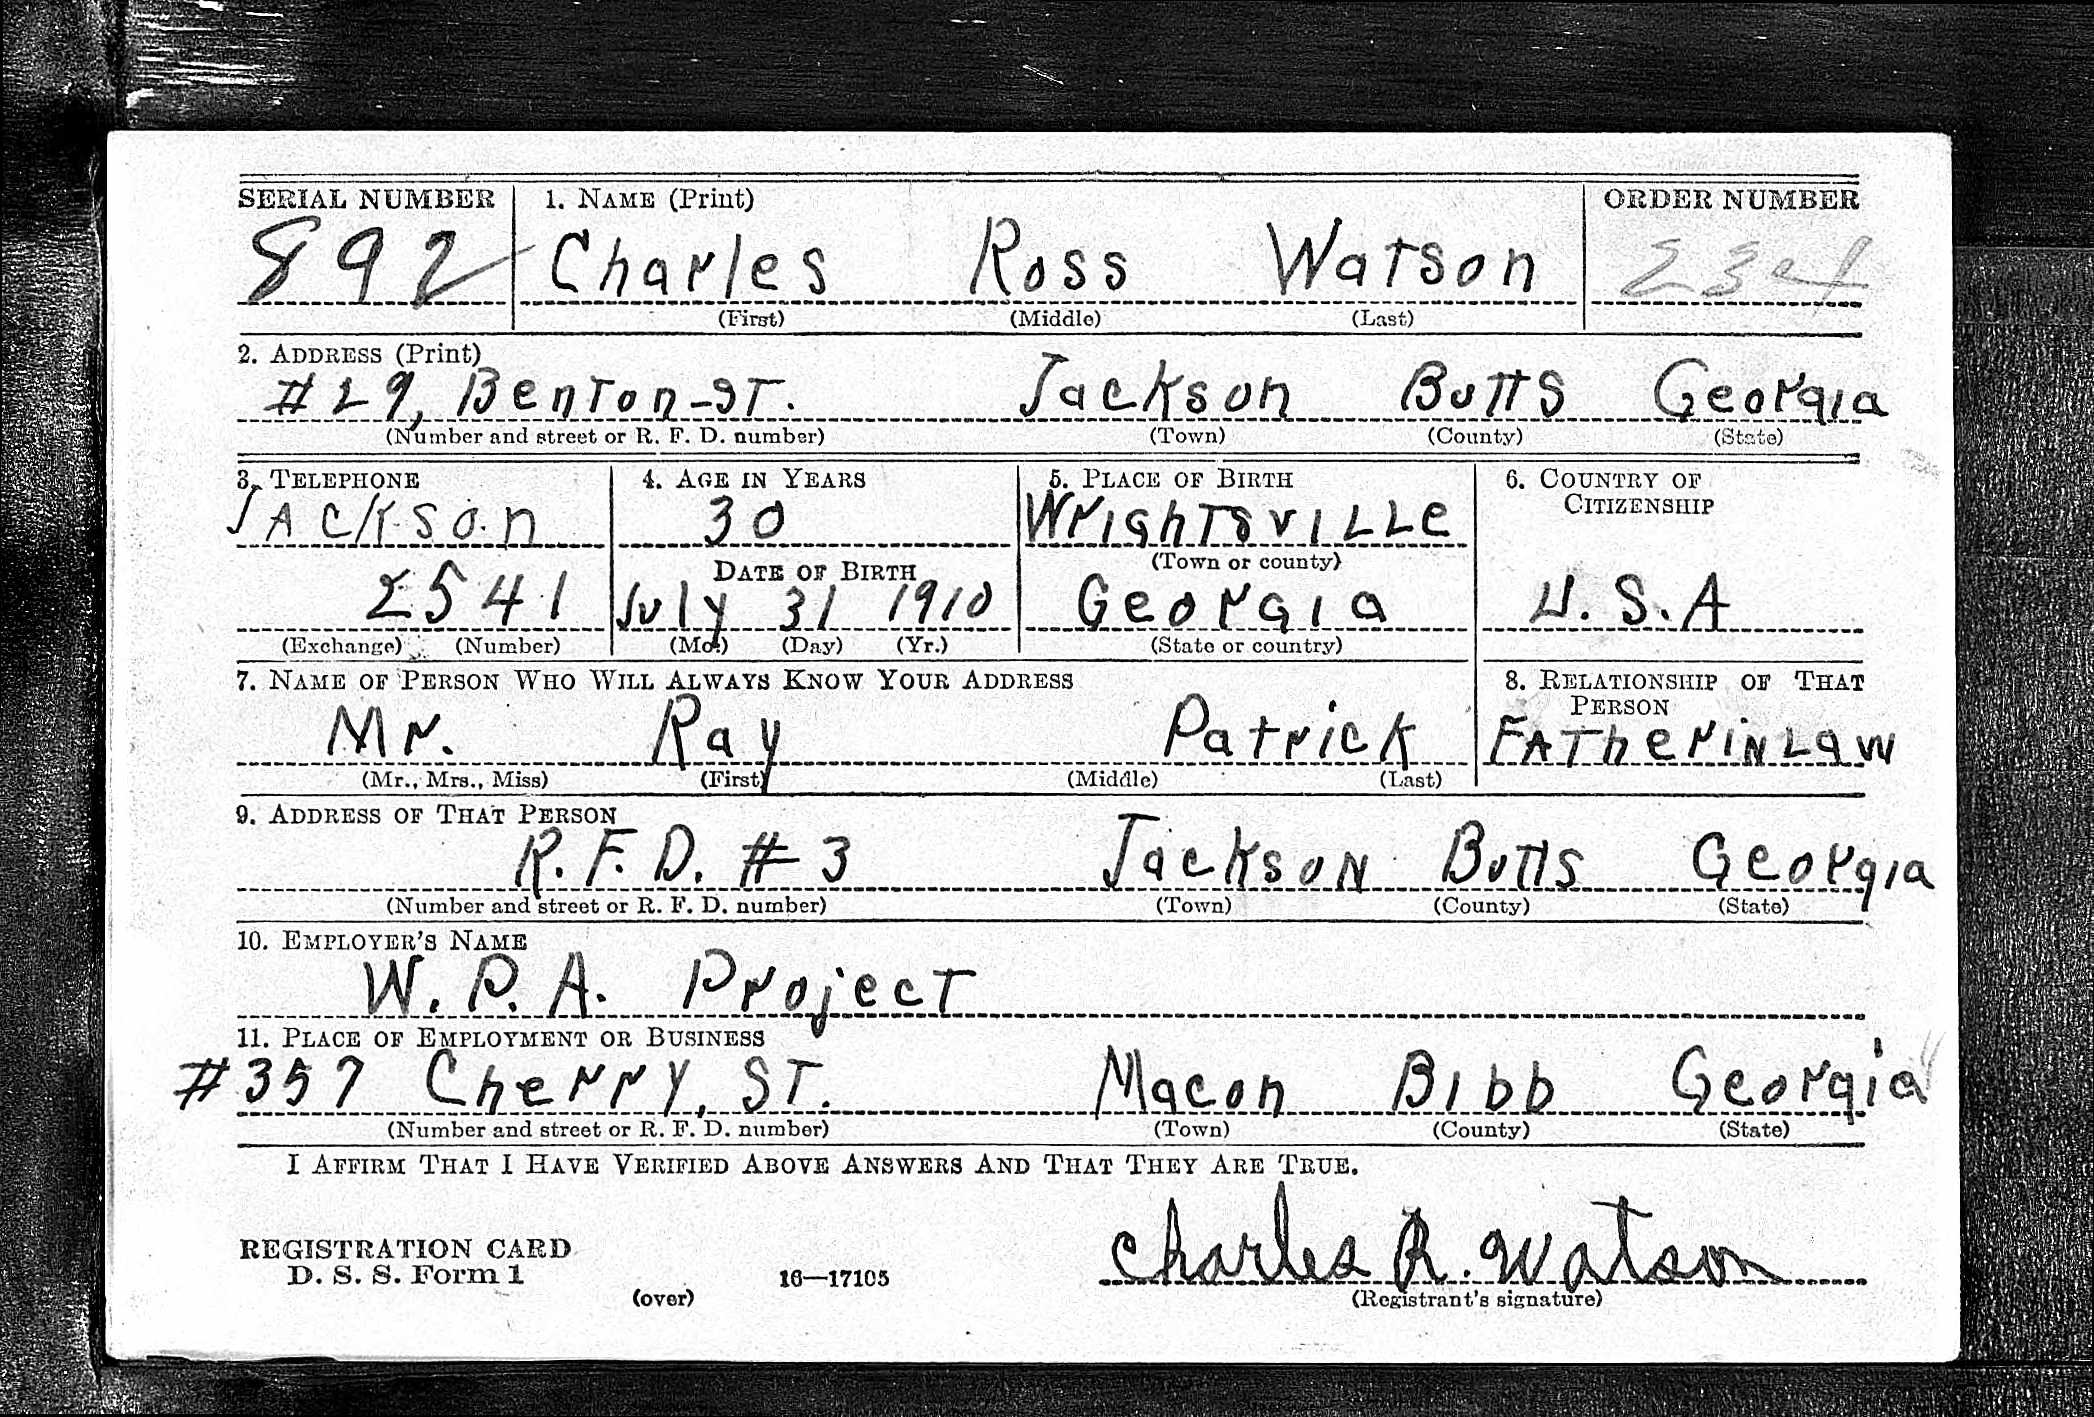 SERIAL NUMBER 1. NAME (Print) ORDER NUMBER
892 Charles Ross Watson
(First) (Middle) (Last)
2. ADDRESS (Print)
#29, Benton-ST. Jackson Butts Georgia
(Number and street or R. F. D. number) (Town) (County) (State)
3. TELEPHONE 4. AGE IN YEARS 5. PLACE OF BIRTH 6. COUNTRY OF
CITIZENSHIP
JAckson 30 WrighTsviLLe
DATE OF BIRTH (Town or county)
2541 July 31 1910 Georgia U.S.A
(Exchange) (Number) (Mo.) (Day) (Yr.) (State or country)
7. NAME OF PERSON WHO WILL ALWAYS KNOW YOUR ADDRESS 8. RELATIONSHIP OF THAT
PERSON
Mr. Ray Patrick FATherinLaw
(Mr., Mrs., Miss) (First) (Middle) (Last)
9. ADDRESS OF THAT PERSON
R.F.D. #3 Jackson Butts Georgia
(Number and street or R. F. D. number) (Town) (County) (State)
10. EMPLOYER'S NAME
W.P.A. Project
11. PLACE OF EMPLOYMENT OR BUSINESS
#357 Cherry, ST. Macon Bibb Georgia
(Number and street or R. F. D. number) (Town) (County) (State)
I AFFIRM THAT I HAVE VERIFIED ABOVE ANSWERS AND THAT THEY ARE TRUE.
Charles R. Watson
REGISTRATION CARD
D. S. S. Form 1 16—17105
(over) (Registrant's signature)